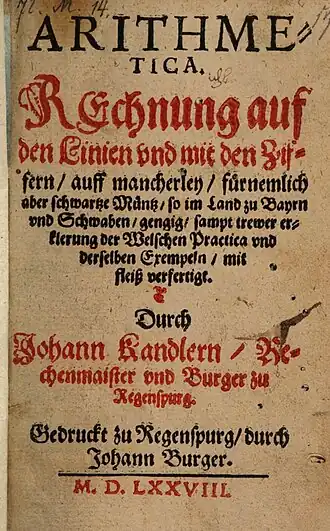 72. M. 14.
ARITHME-
TICA.
REchnung auf
den Linien vnd mit den Zif-
fern/ auff mancherley/ fürnemlich
aber schwartze Müntz/ so im Land zu Bayrn
vnd Schwaben/ gengig/ sampt trewer er-
klerung der Welschen Practica vnd
derselben Exempeln/ mit
fleiß verfertigt.
Durch
Johann Kandlern/ Re-
chenmaister vnd Burger zu
Regenspurg.
Gedruckt zu Regenspurg/ durch
Johann Burger.
M. D. LXXVIII.